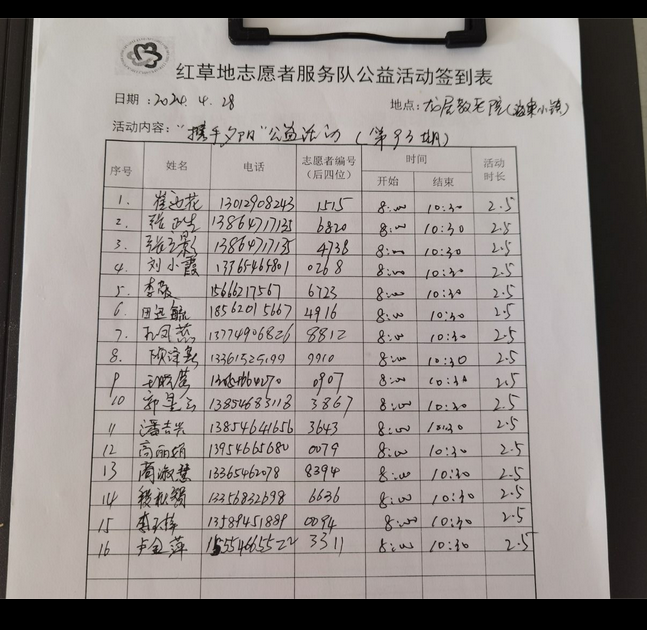 红草地志愿者服务队公益活动签到表
日期：2024.4.28 地点：龙居敬老院
活动内容："携手夕阳"公益活动（第93期）
序号 姓名 电话 志愿者编号（后四位） 时间 开始 结束 活动时长
1. 13012908243 1515 8:00 10:30 2.5
2. 13864717135 6820 8:00 10:30 2.5
3. 13864717135 4738 8:00 10:30 2.5
4. 刘小霞 0268 8:00 10:30 2.5
5. 李敬 15666217567 6723 8:00 10:30 2.5
6. 田迅毓 18562015667 4916 8:00 10:30 2.5
7. 孔凤燕 13774906826 8812 8:00 10:30 2.5
8. 9910 8:00 10:30 2.5
9 0907 8:00 10:30 2.5
10 郭星云 13854683118 3867 8:00 10:30 2.5
11 潘吉兴 13854641656 3643 8:00 10:30 2.5
12 高丽娟 13954665680 0079 8:00 10:30 2.5
13 蔺淑慧 13365462078 8394 8:00 10:30 2.5
14 13356832698 6636 8:00 10:30 2.5
15 13589451889 0094 8:00 10:30 2.5
16 卢金萍 15554665522 3311 8:00 10:30 2.5